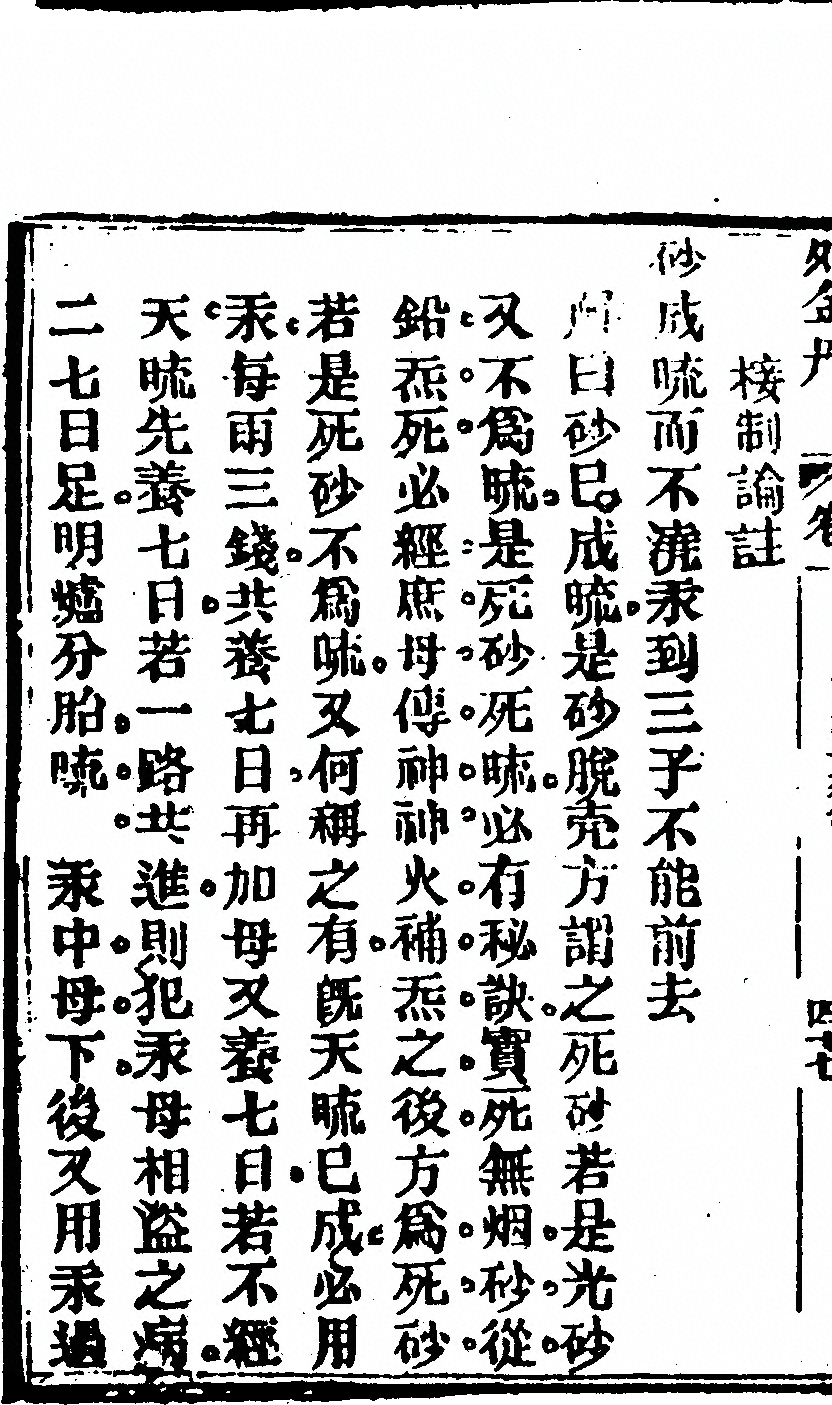 外金丹 卷 四十七
接制論註
砂成㗬而不澆汞到三子不能前去
所曰砂已成㗬是砂脫壳方謂之死砂若是光砂
又不爲㗬是死砂死㗬必有秘訣實死無烟砂從
鉛炁死必經庶母傳神神火補炁之後方爲死砂
若是死砂不爲㗬又何稱之有旣天㗬巳成必用
汞每兩三錢共養七日再加母又養七日若不經
天㗬先養七日若一路共進則犯汞母相溢之病
二七日足明爐分胎㗬 汞中母下後又用汞過